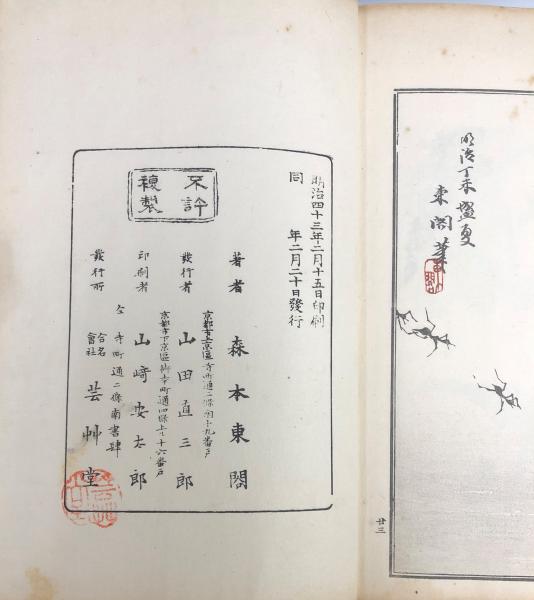 明治丁未盛夏
東閣筆
廿三
明治四十三年二月十五日印刷
同 年二月二十日發行
不許
複製
著者 森本東閣
京都市上京區寺町通二條南十九番戸
發行者 山田直三郎
京都市下京區御幸町通四條上ル十六番戸
印刷者 山﨑安太郎
寺町通二條南書肆
發行所 合名會社 芸艸堂